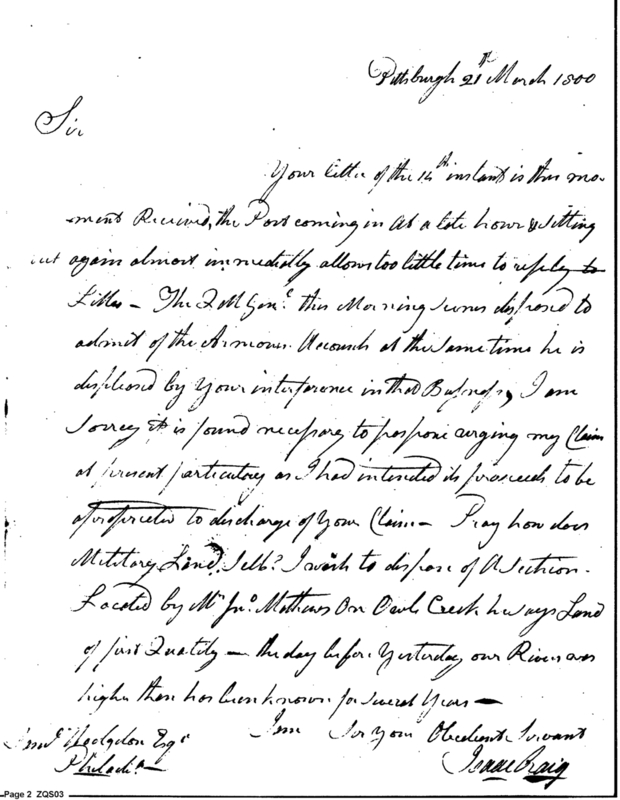 Pittsburgh 21st March 1800
Sir
Your letter of the 14th instant is this mo-
ment Received, the Post coming in at a late hour & setting
out again almost immediatly allows too little time to reply to
Letters – The QM Genl. this Morning seems disposed to
admit of the Armourers Accounts at the same time he is
displeased by Your interference in that Business, I am
sorrey it is found necessary to pospone urging my Claim
at present particulary as I had intended its proceeds to be
apropriated to discharge of Your Claim – Pray how does
Military Land Sell? I wish to dispose of A Section
Located by Mr. Jno. Mathews On Owls Creek he says Land
of first Quality – the day before Yesterday our River was
higher than has been known for several Years –
I am Sir Your Obedient Servant
Isaac Craig
Saml. Hodgdon Esqr
Philada.
Page 2 ZQS03